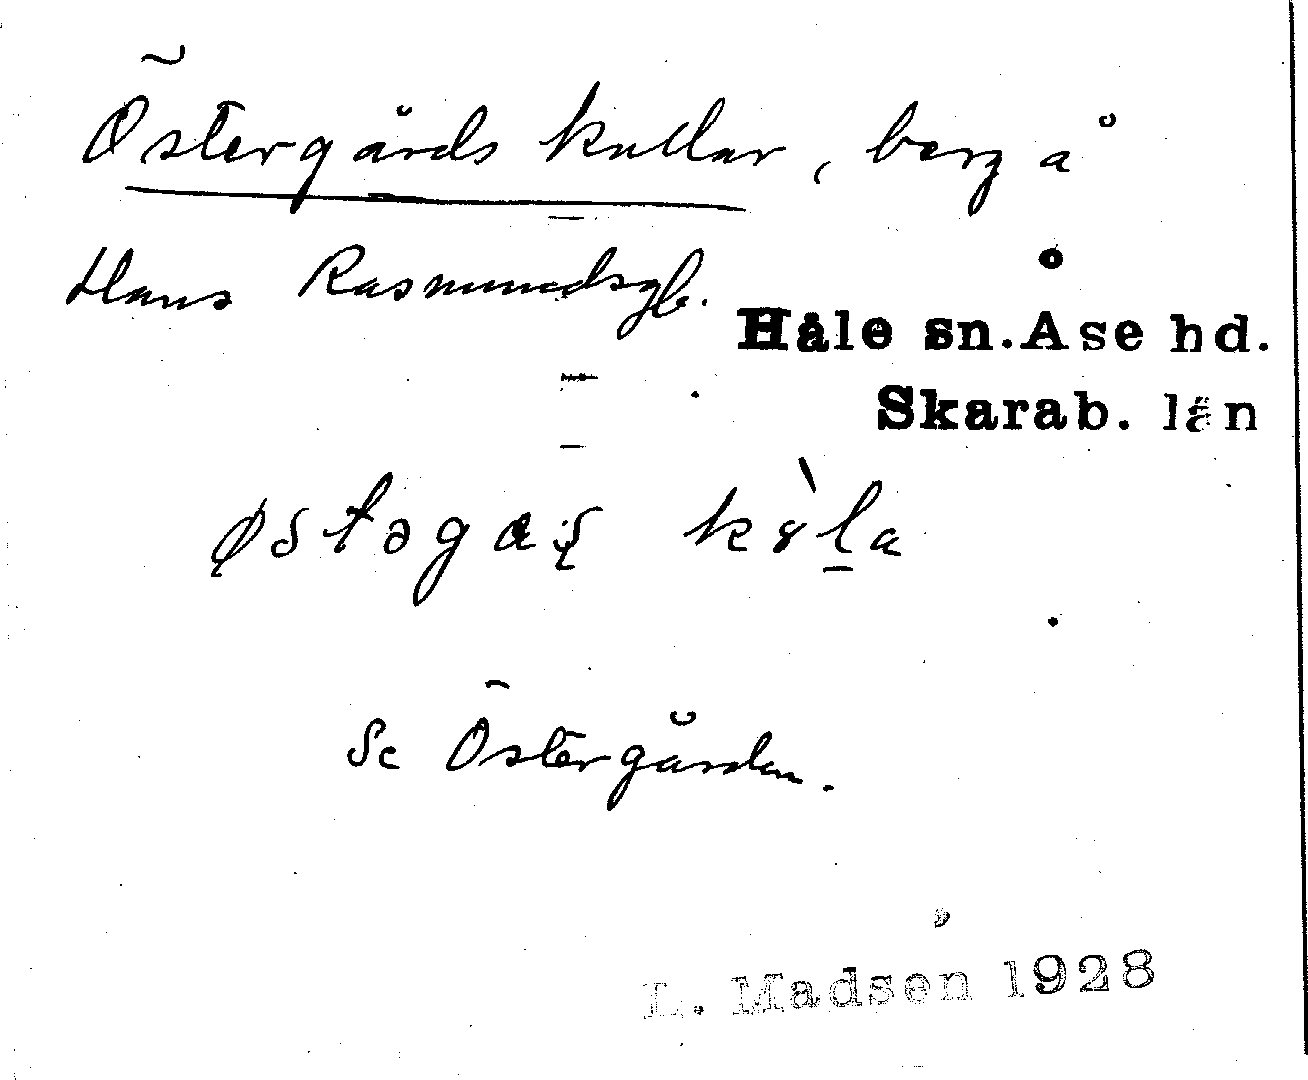 Östergårds kullar, berg å
Hans Rasmundsgb.
Håle sn. Åse hd.
Skarab. län
østəgaʂ kòḷa
Se Östergården.
L. Madsen 1928